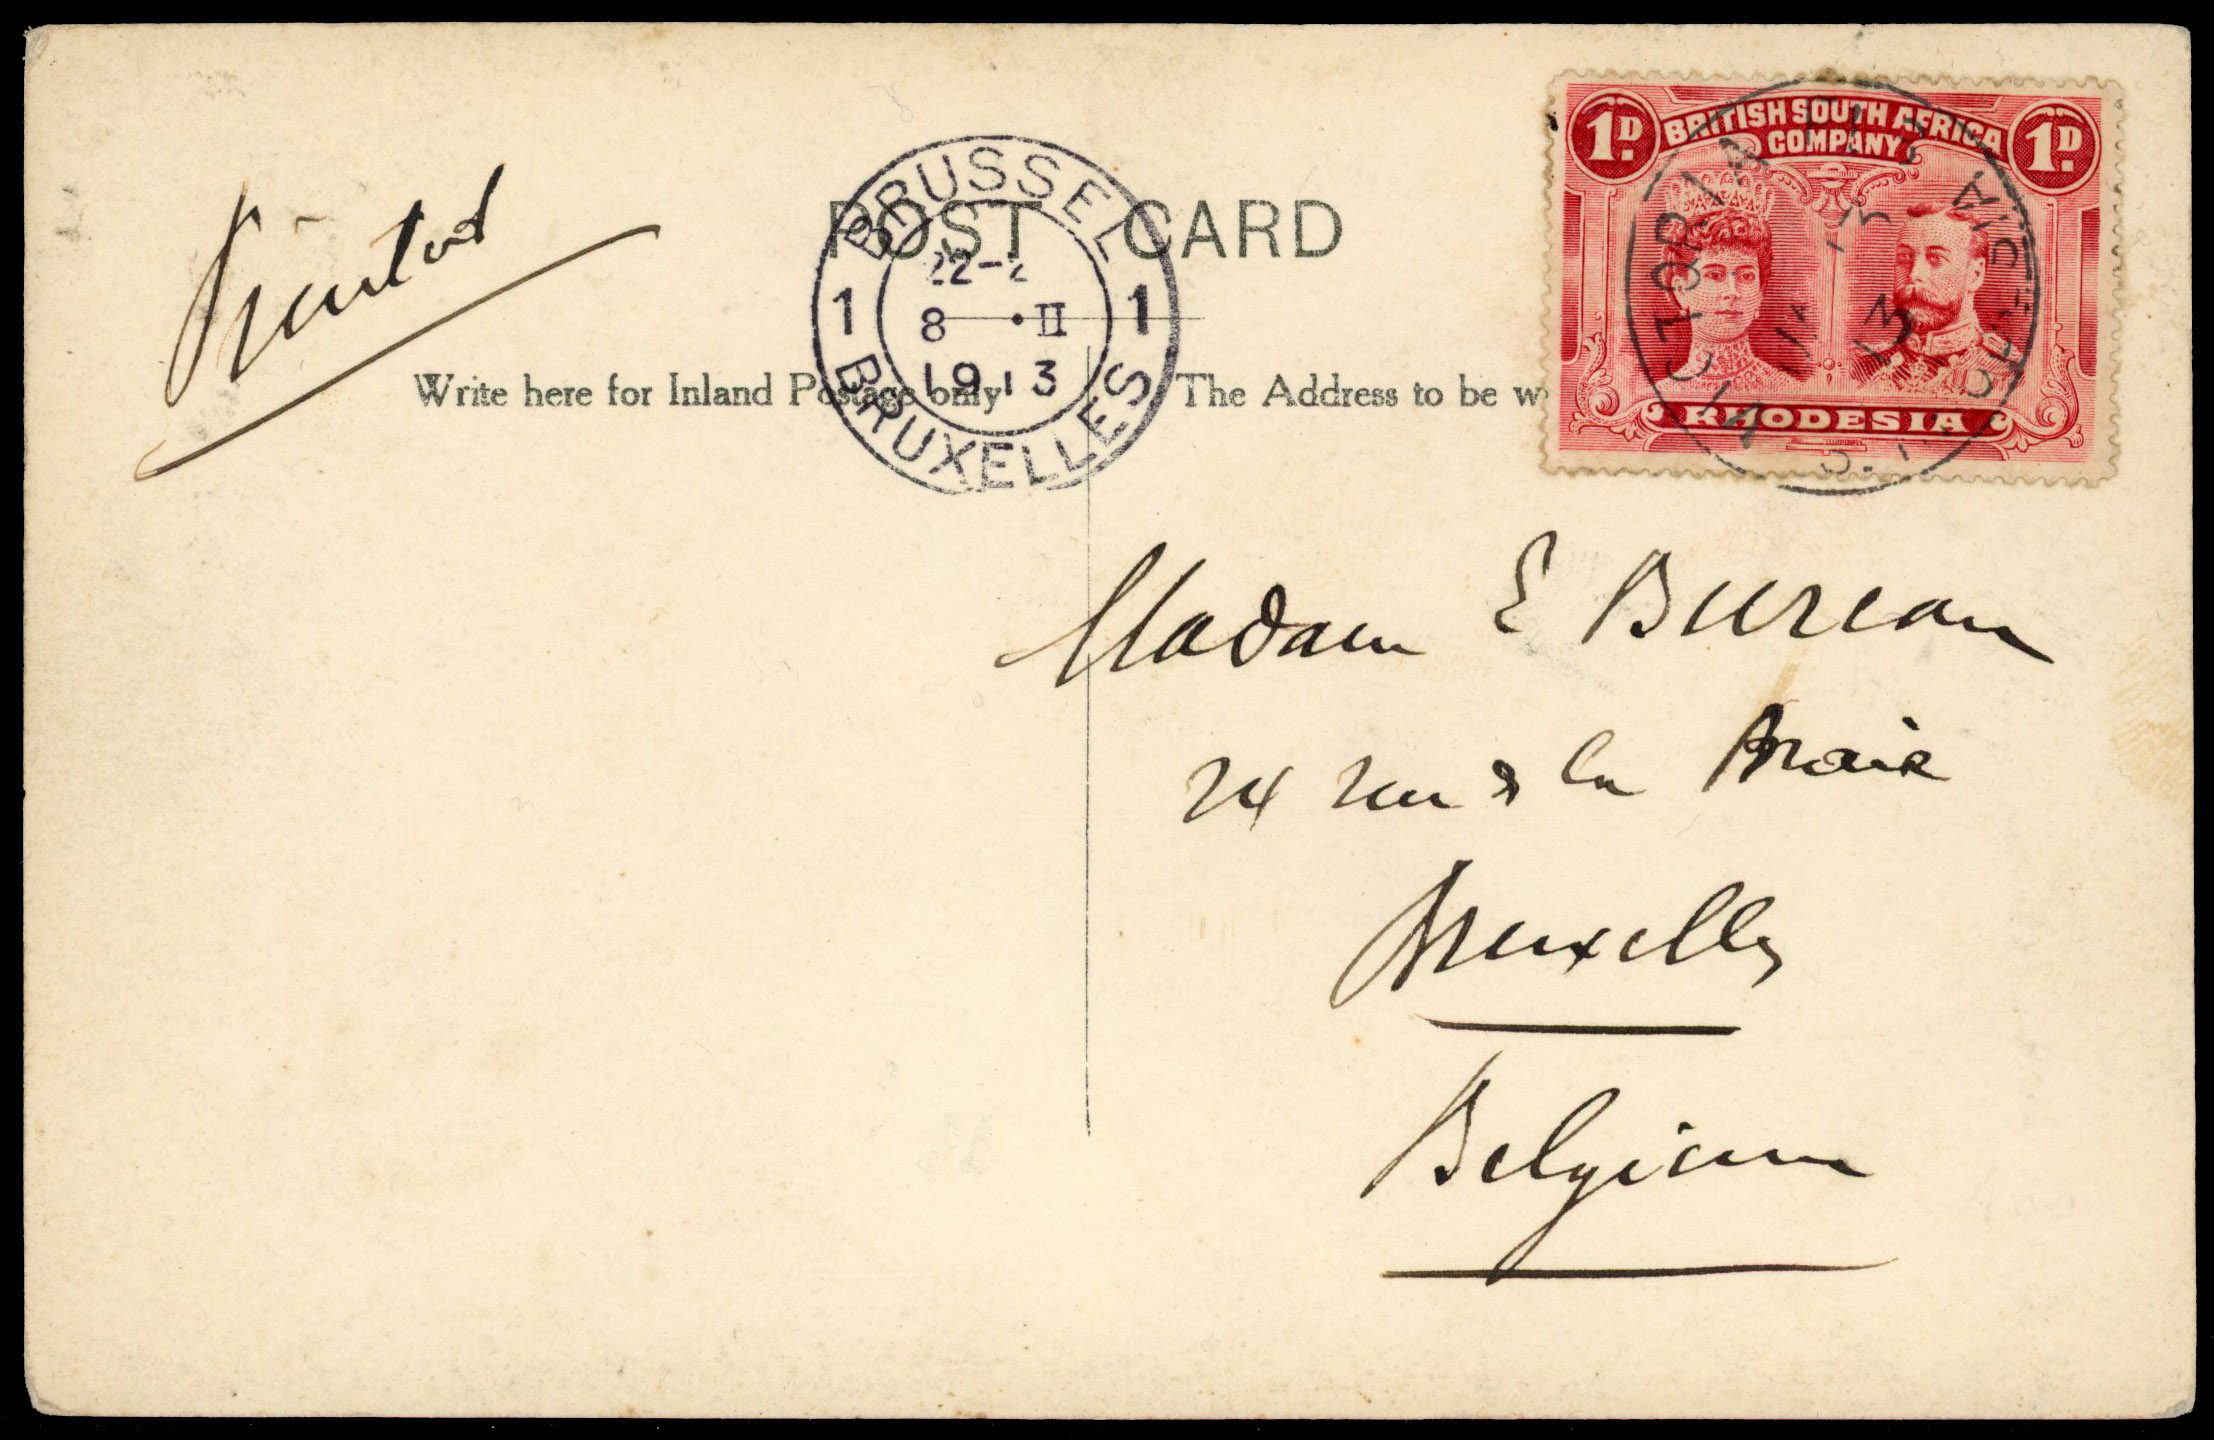 Printed
POST CARD
Write here for Inland Postage only
The Address to be w
BRUSSEL
22-2
8 • II
1913
1 1
BRUXELLES
1D. BRITISH SOUTH AFRICA 1D.
COMPANY
RHODESIA
VICTORIA
13
Madam E Bureau
24 rue de la
Bruxelles
Belgium